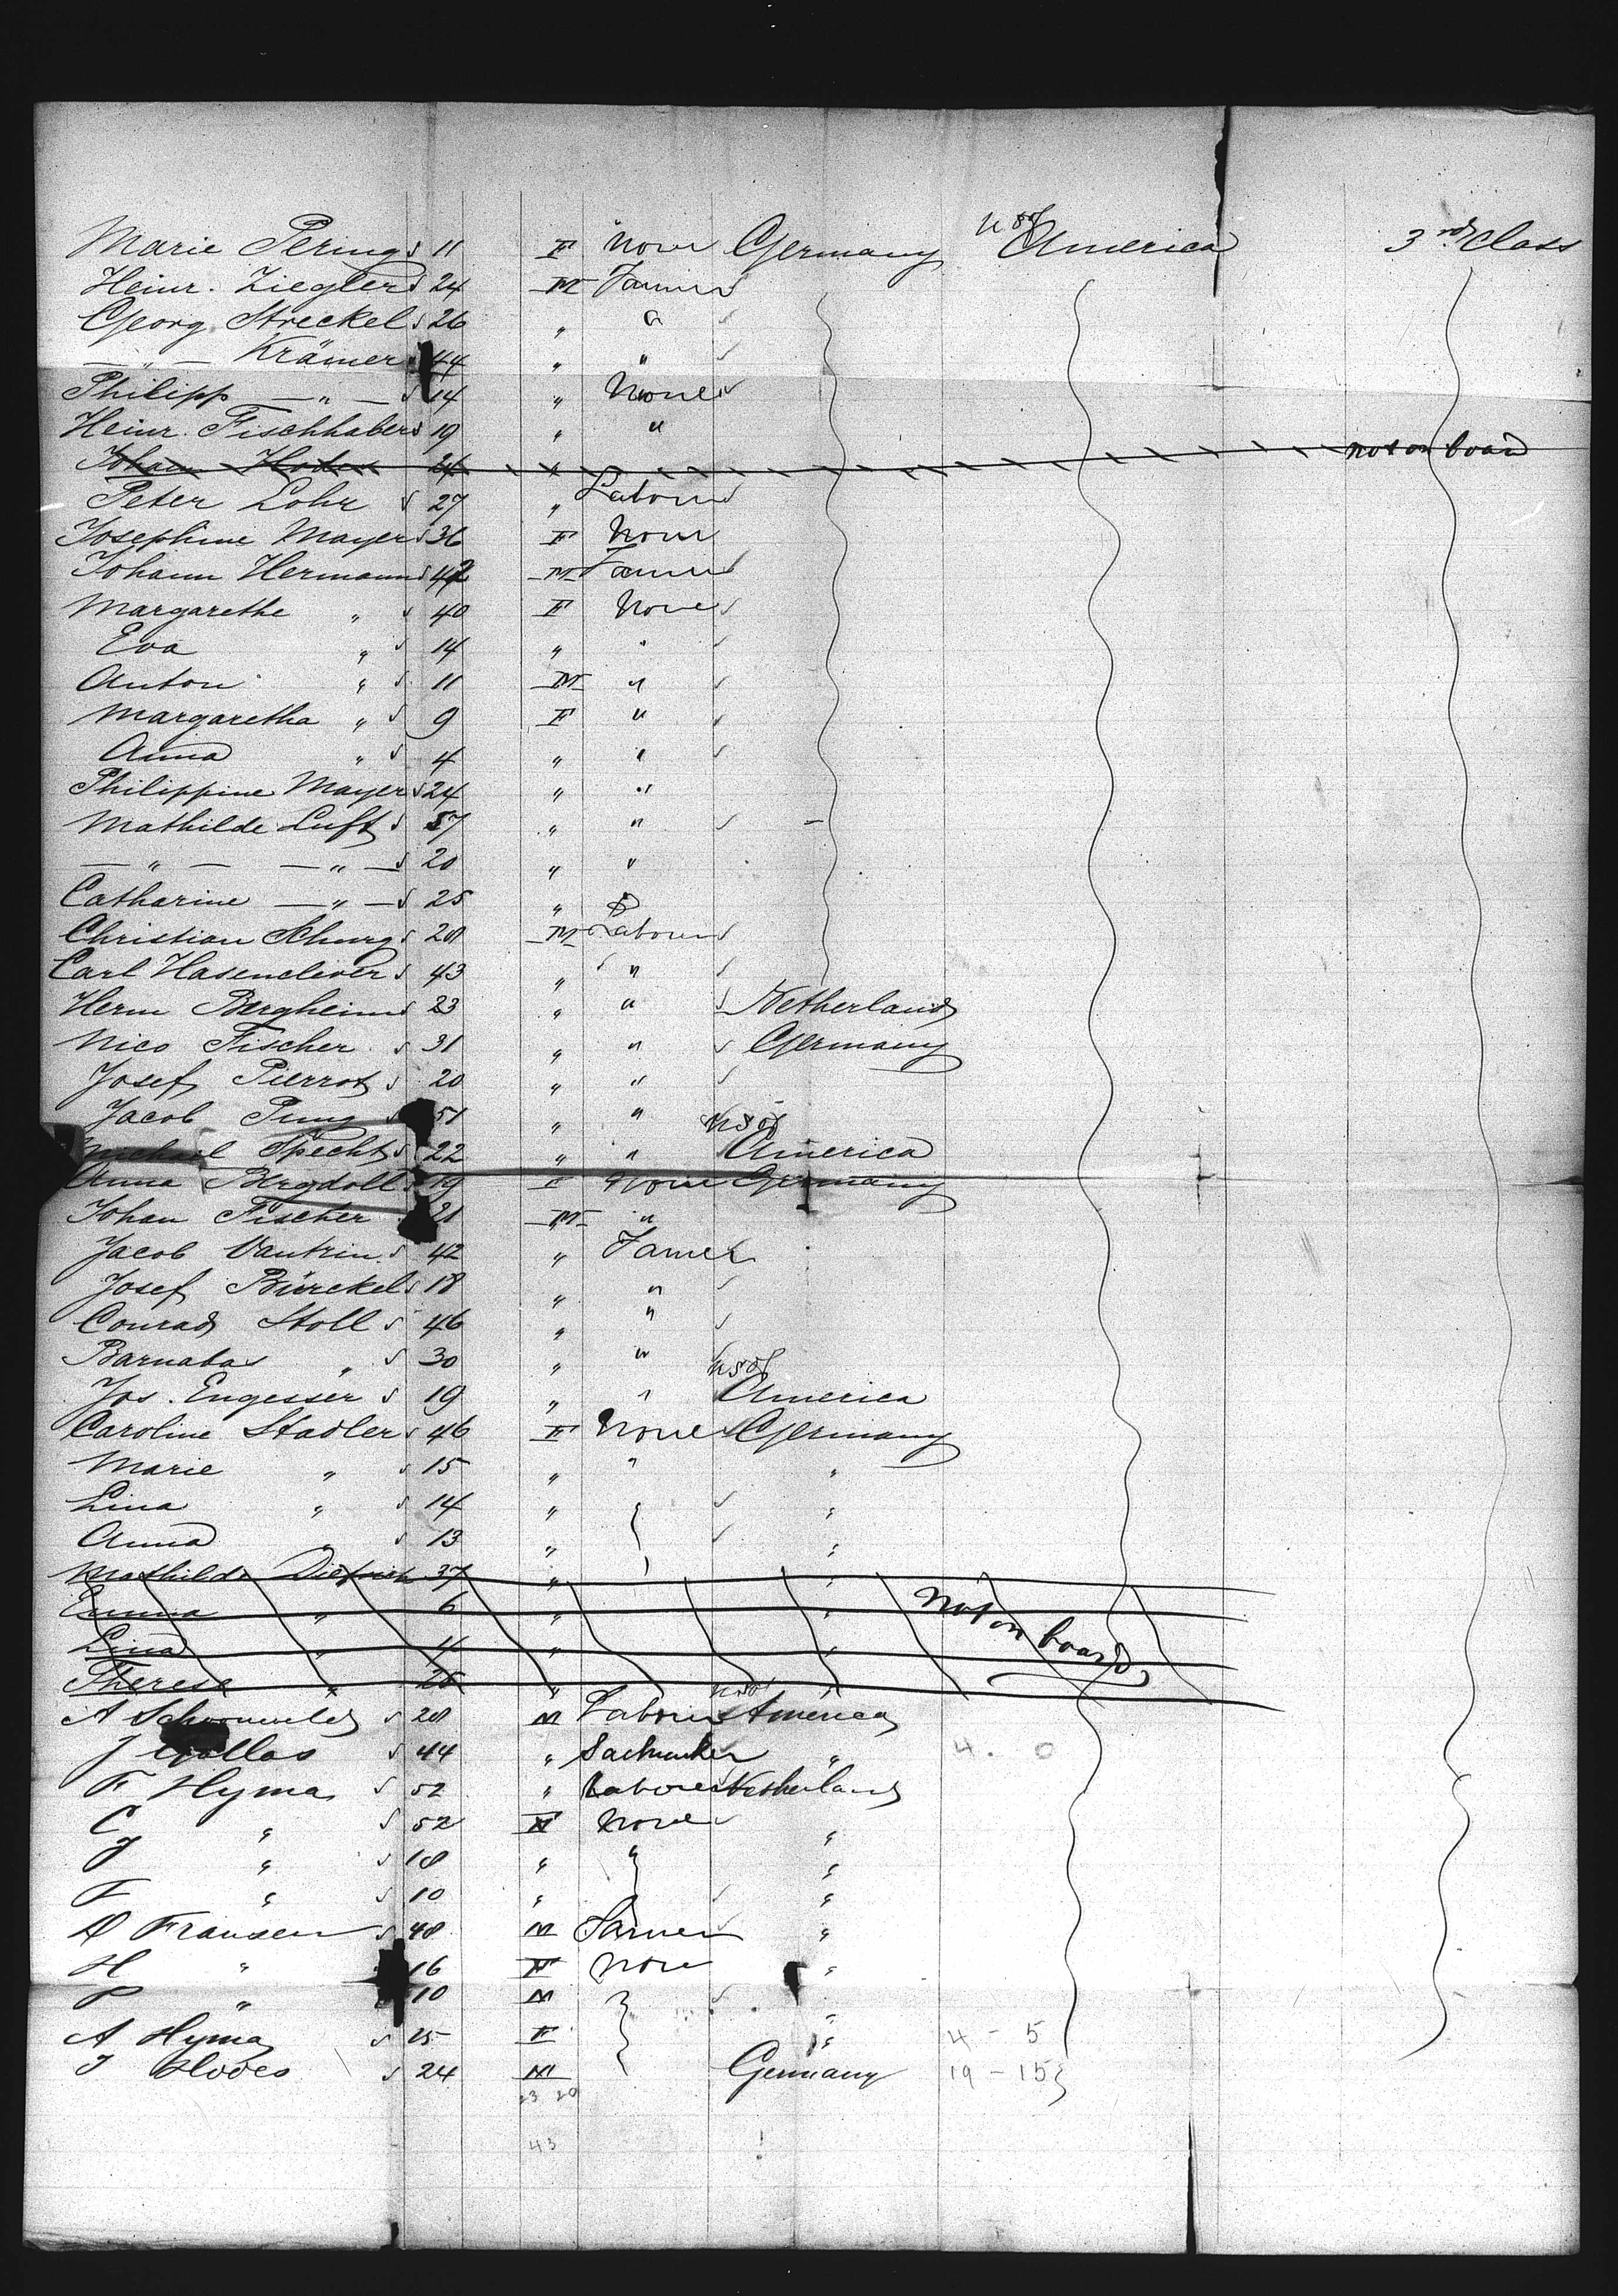 Marie Perings 11 F None Germany U S of America 3rd Class
Heinr. Ziegler 24 M Farmer
Georg Streckel 26 " "
— " — Krämer 44 " "
Philipp — " — 14 " None
Heinr. Fischhaber 19 " "
Johann 24 " not on board
Peter Lohr 27 " Labourer
Josephine Mayer 36 F None
Johann Hermann 42 M Farmer
Margarethe " 40 F None
Eva " 14 " "
Anton " 11 M "
Margaretha " 9 F "
Anna " 4 " "
Philippine Mayer 24 " "
Mathilde Luft 57 " "
— " — — " — 20 " "
Catharine — " — 25 "
Christian Schurg 28 M Labourer
Carl Hasenclever 43 " "
Herm Bergheim 23 " " Netherland
Nico Fischer 31 " " Germany
Josef Pierrot 20 " "
Jacob Pung 51 " "
Michael Specht 22 " " U S of America
Anna Bergdoll 19 F None Germany
Johan Fischer 21 M "
Jacob Vautrin 42 " Farmer
Josef Bürckel 18 " "
Conrad Stoll 46 " "
Barnabas " 30 " "
Jos. Engesser 19 " " U S of America
Caroline Stadler 46 F None Germany
Marie " 15 " " "
Lina " 14 " "
Anna " 13 " "
Mathilde Dietrich 37 " "
Emma " 6 " " not on board
Lina " 4 " "
Therese " 26 " "
A Schoonveld 28 M Labourer U S of America
J 44 " "
F Hyma 52 " Labourer Netherland
C " 52 F None "
J " 18 " " "
F " 10 " "
D Fransen 48 M Farmer "
H " 16 F None "
P " 10 M "
A Hyma 25 F " 4 - 5
J 24 M Germany 19 - 15
23 20
43